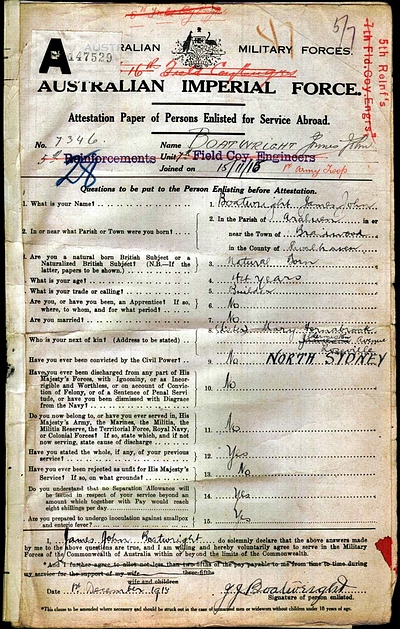 5/7
AUSTRALIAN MILITARY FORCES.
A 147529
16th Field Coy Engrs
5th Reinf's
7th Fld. Coy. Engrs
AUSTRALIAN IMPERIAL FORCE.
Attestation Paper of Persons Enlisted for Service Abroad.
No. 7346 Name BOATWRIGHT James John
5th Reinforcements Unit 7th Field Coy, Engineers
Joined on 15/11/15
Questions to be put to the Person Enlisting before Attestation.
1. What is your Name? 1. Boatwright James John
2. In or near what Parish or Town were you born? 2. In the Parish of in or
near the Town of Braidwood
in the County of
3. Are you a natural born British Subject or a Naturalized British Subject? (N.B.—If the latter, papers to be shown.) 3. Natural Born
What is your age? 4. years
What is your trade or calling? 5. Builder
Are you, or have you been, an Apprentice? If so, where, to whom, and for what period? 6. No
Are you married? 7. No
Who is your next of kin? (Address to be stated) 8. (Sister) Mary
Avenue
NORTH SIDNEY
Have you ever been convicted by the Civil Power? 9. No
Have you ever been discharged from any part of His Majesty's Forces, with Ignominy, or as Incorrigible and Worthless, or on account of Conviction of Felony, or of a Sentence of Penal Servitude, or have you been dismissed with Disgrace from the Navy? 10. No
Do you now belong to, or have you ever served in, His Majesty's Army, the Marines, the Militia, the Militia Reserve, the Territorial Force, Royal Navy, or Colonial Forces? If so, state which, and if not now serving, state cause of discharge 11. No
Have you stated the whole, if any, of your previous service? 12. Yes
Have you ever been rejected as unfit for His Majesty's Service? If so, on what grounds? 13. No
Do you understand that no Separation Allowance will be issued in respect of your service beyond an amount which together with Pay would reach eight shillings per day 14. Yes
Are you prepared to undergo inoculation against smallpox and enteric fever? 15. Yes
I, James John Boatwright do solemnly declare that the above answers
made by me to the above questions are true, and I am willing and hereby voluntarily agree to serve in the Military
Forces of the Commonwealth of Australia within or beyond the limits of the Commonwealth.
*And I further agree to allot not less than two-fifths of the pay payable to me from time to time during
my service for the support of my wife three-fifths
wife and children
Date 1st December 191 J J Boatwright
Signature of person enlisted.
*This clause to be amended where necessary and should be struck out in the case of unmarried men or widowers without children under 18 years of age.